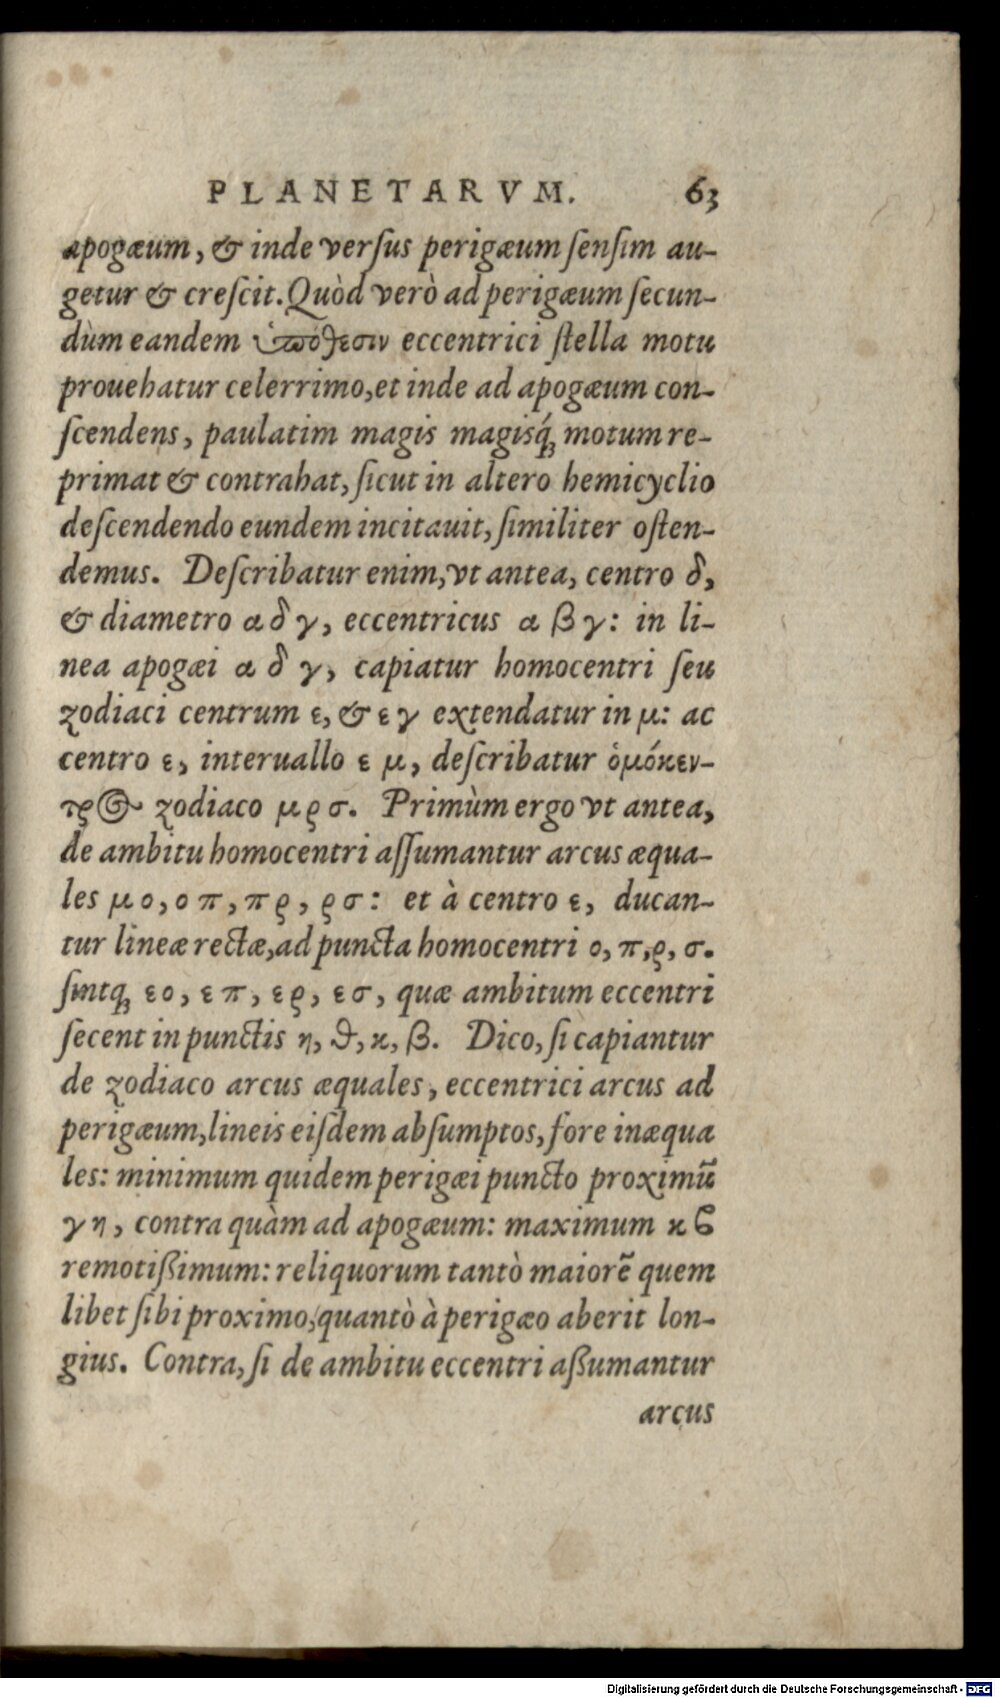 PLANETARVM. 63
apogæum, & inde versus perigæum sensim au-
getur & crescit. Quòd verò ad perigæum secun-
dùm eandem ὑπόθεσιν eccentrici stella motu
prouehatur celerrimo, et inde ad apogæum con-
scendens, paulatim magis magisq́; motum re-
primat & contrahat, sicut in altero hemicyclio
descendendo eundem incitauit, similiter osten-
demus. Describatur enim, vt antea, centro δ,
& diametro α δ γ, eccentricus α β γ: in li-
nea apogæi α δ γ, capiatur homocentri seu
zodiaci centrum ε, & ε γ extendatur in μ: ac
centro ε, interuallo ε μ, describatur ὁμόκεν-
τρος zodiaco μ ρ σ. Primùm ergo vt antea,
de ambitu homocentri assumantur arcus æqua-
les μ ο, ο π, π ρ, ρ σ: et à centro ε, ducan-
tur lineæ rectæ, ad puncta homocentri ο, π, ρ, σ.
sintq; ε ο, ε π, ε ρ, ε σ, quæ ambitum eccentri
secent in punctis η, ϑ, κ, β. Dico, si capiantur
de zodiaco arcus æquales, eccentrici arcus ad
perigæum, lineis eisdem absumptos, fore inæqua
les: minimum quidem perigæi puncto proximũ
γ η, contra quàm ad apogæum: maximum κ ϐ
remotißimum: reliquorum tantò maiorẽ quem
libet sibi proximo, quantò à perigæo aberit lon-
gius. Contra, si de ambitu eccentri aßumantur
arcus
Digitalisierung gefördert durch die Deutsche Forschungsgemeinschaft - DFG